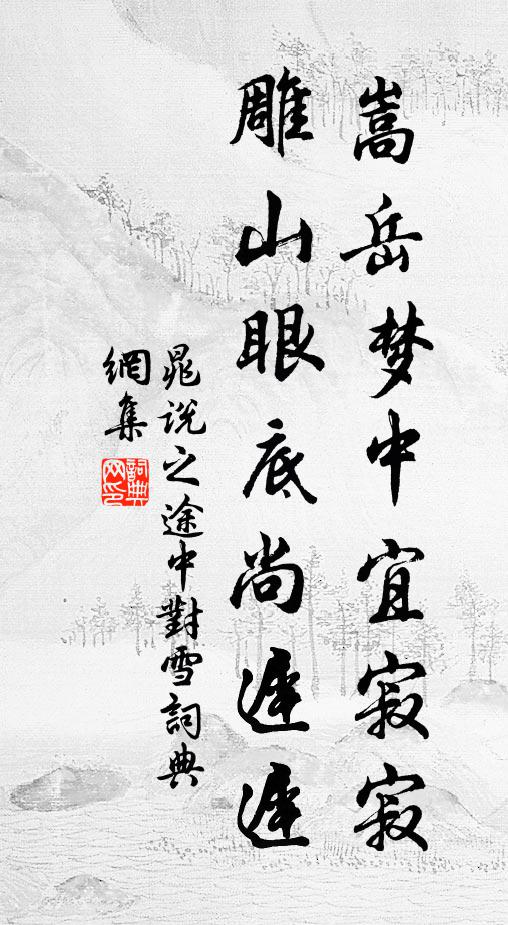 嵩岳梦中宜寂寂
雕山眼底尚遲遲
晁说之途中對雪詞典
網集
詞典网印